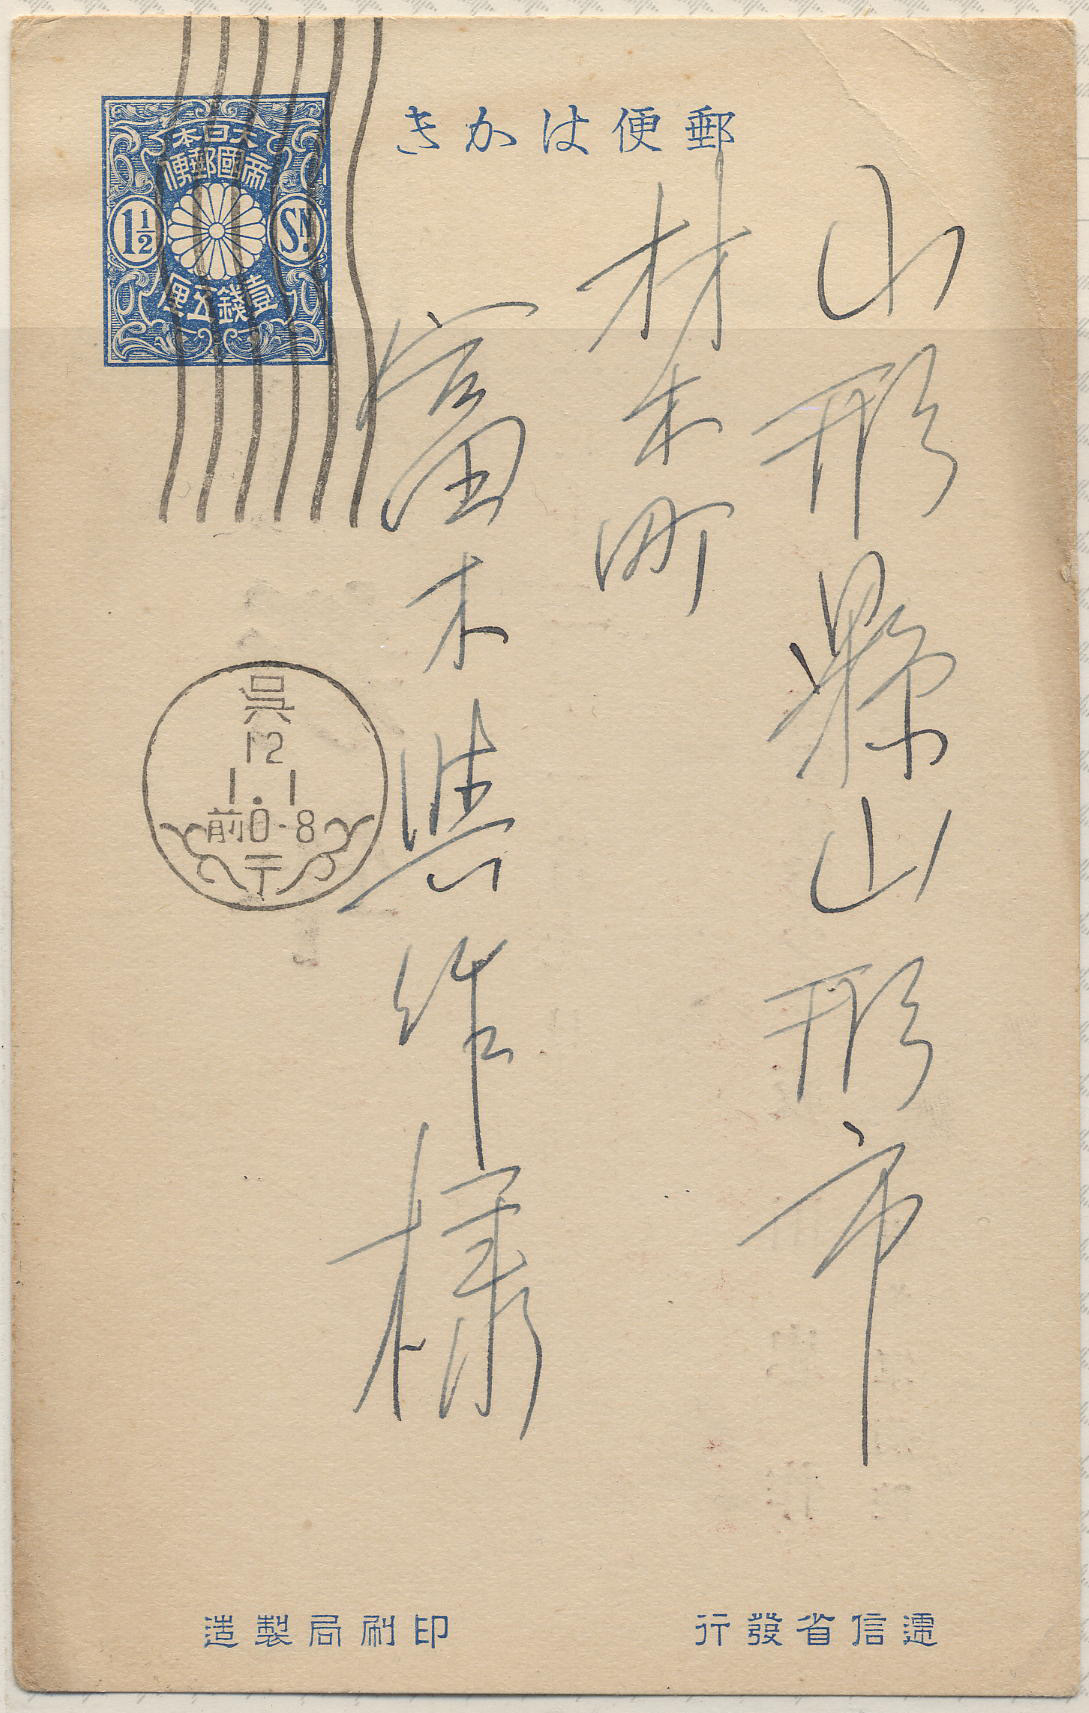 郵便はかき
大日本
帝國郵便
1½
Sn.
壹錢五厘
山形縣山形市
材木町
富木與作様
呉
12
1.1
前0-8
〒
遞信省發行
印刷局製造